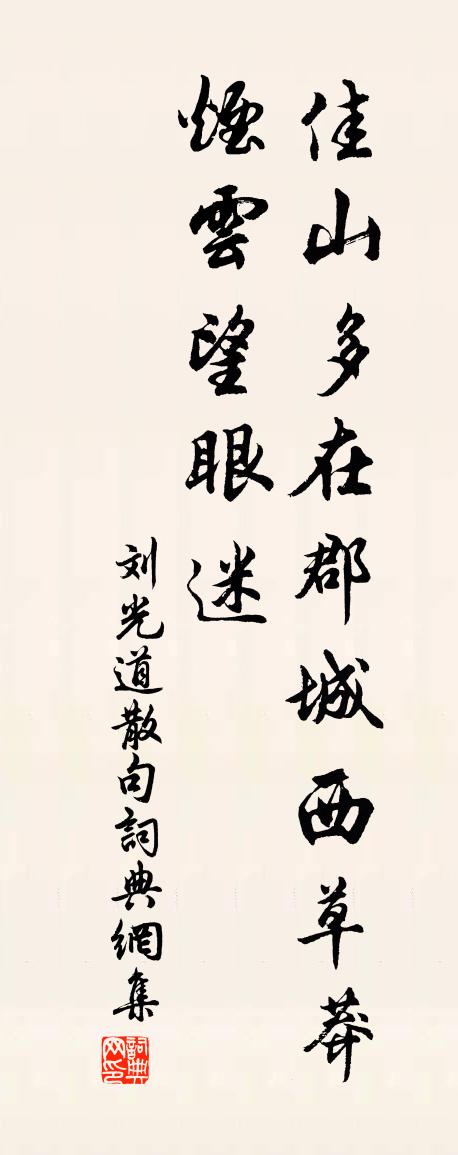 佳山多在郡城西草莽
煙雲望眼迷
刘光道散句詞典網集
詞典网印